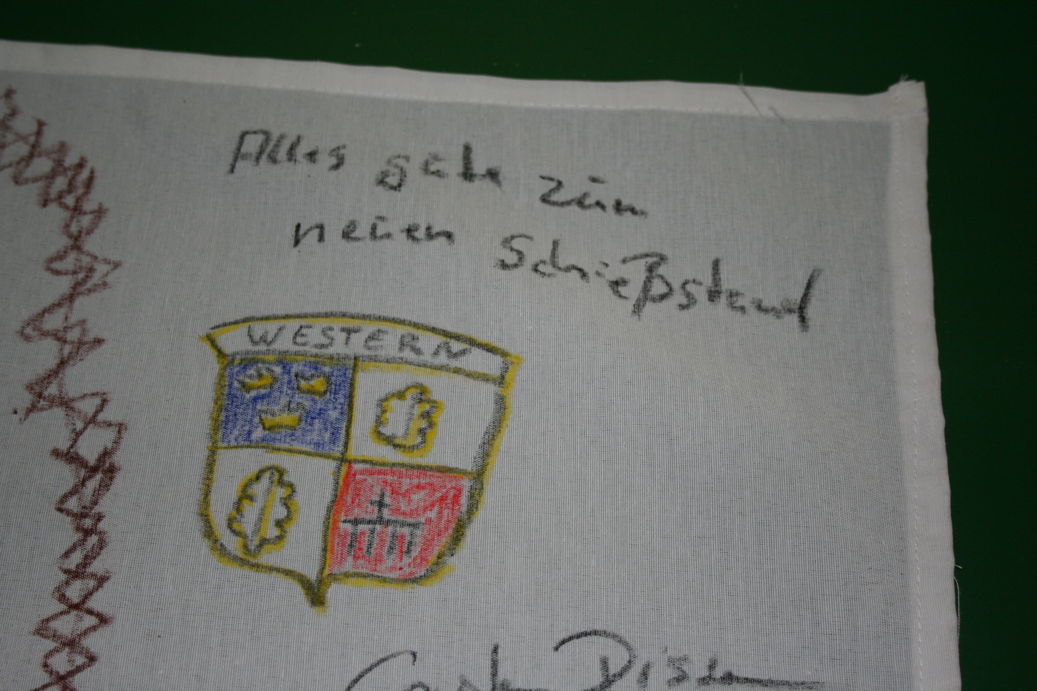 Alles gute zum
neuen Schießstand
WESTERN